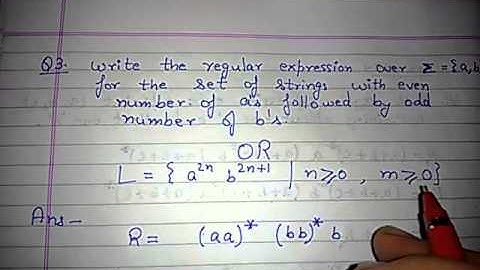 Q3. Write the regular expression over Σ = {a,b
for the set of strings with even
number of a's followed by odd
number of b's.
OR
L = { a²ⁿ b²ⁿ⁺¹ | n≥0 , m≥0}
Ans - 
R = (aa)* (bb)* b